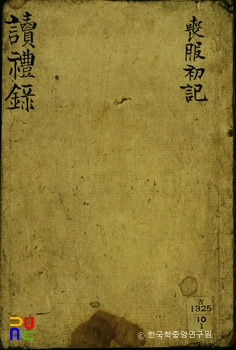 喪服初記
讀禮錄
古
1325
10
1
© 한국학중앙연구원